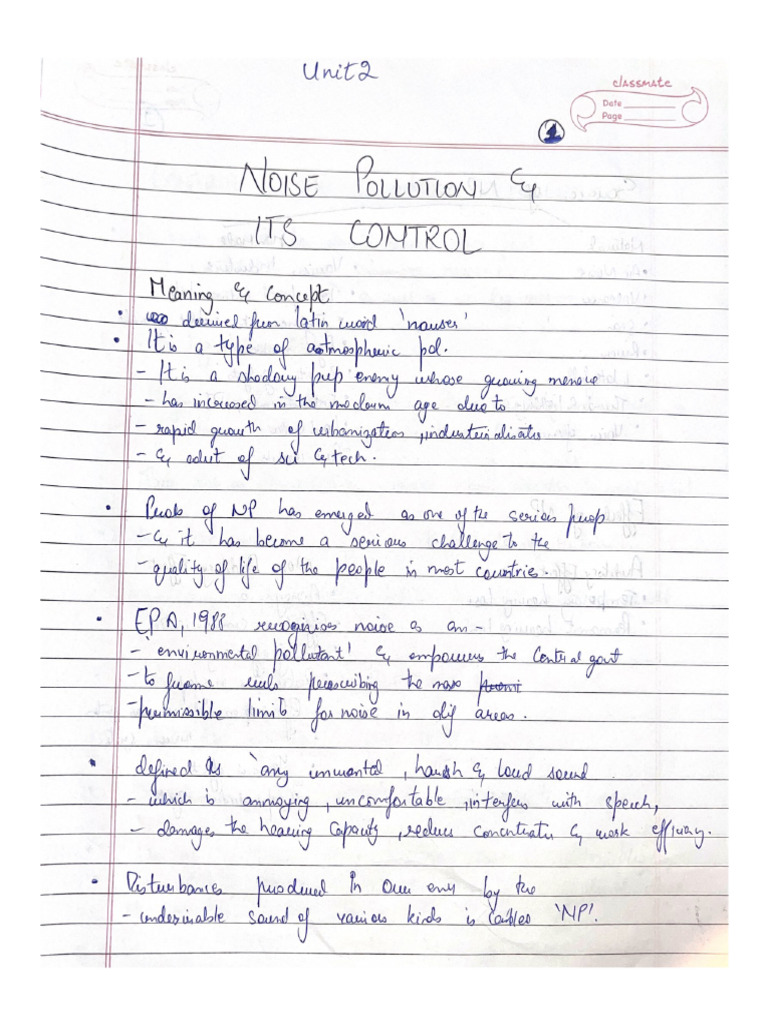 Unit 2
classmate
Date
Page
1
NOISE POLLUTION &
ITS CONTROL
Meaning & Concept
• derived from latin word 'nauses'
• It is a type of atmospheric pol.
- It is a shadowy pup enemy whose growing menace
- has increased in the modern age due to
- rapid growth of urbanization, industrialisatn
- & advt of sci & tech.
• Prob of NP has emerged as one of the serious prop
- & it has become a serious challenge to the
- quality of life of the people in most countries.
• EPA, 1988 recognizises noise as an -
- 'environmental pollutant' & empowers the Central govt
- to frame ruls prescribing the max
- permissible limits for noise in dif areas.
• defined as 'any unwanted, harsh & loud sound
- which is annoying, uncomfortable, interfers with speech,
- damages the hearing capacity, reduces concentratn & work efficiency.
• Disturbances produced in our env by the
- undesirable sound of various kinds is called 'NP'.